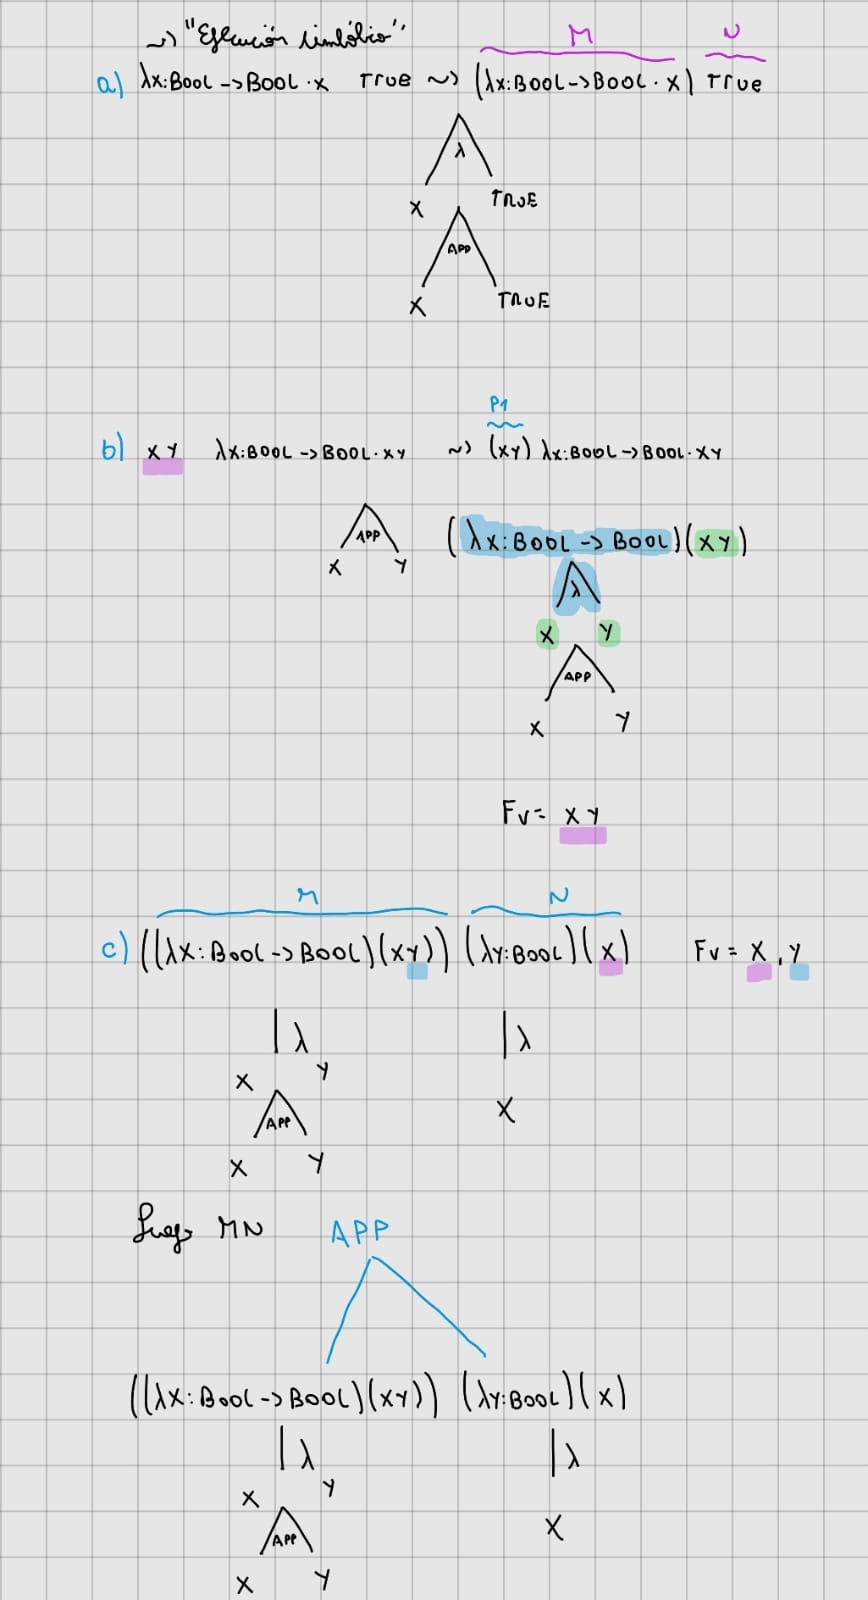 ~> "Ejecución simbólica"
M N
a) λx:BOOL->BOOL·x TRUE ~> (λx:BOOL->BOOL·x) True
λ
X TRUE
APP
X TRUE
P1
b) XY λX:BOOL->BOOL·XY ~> (XY) λx:BOOL->BOOL·XY
APP (λX:BOOL->BOOL)(XY)
X Y
λ
X Y
APP
X Y
FV= XY
M N
c) ((λX:BOOL->BOOL)(XY)) (λY:BOOL)(X) FV= X,Y
|λ |λ
X Y
APP X
X Y
Luego MN APP
((λX:BOOL->BOOL)(XY)) (λY:BOOL)(X)
|λ |λ
X Y
APP X
X Y